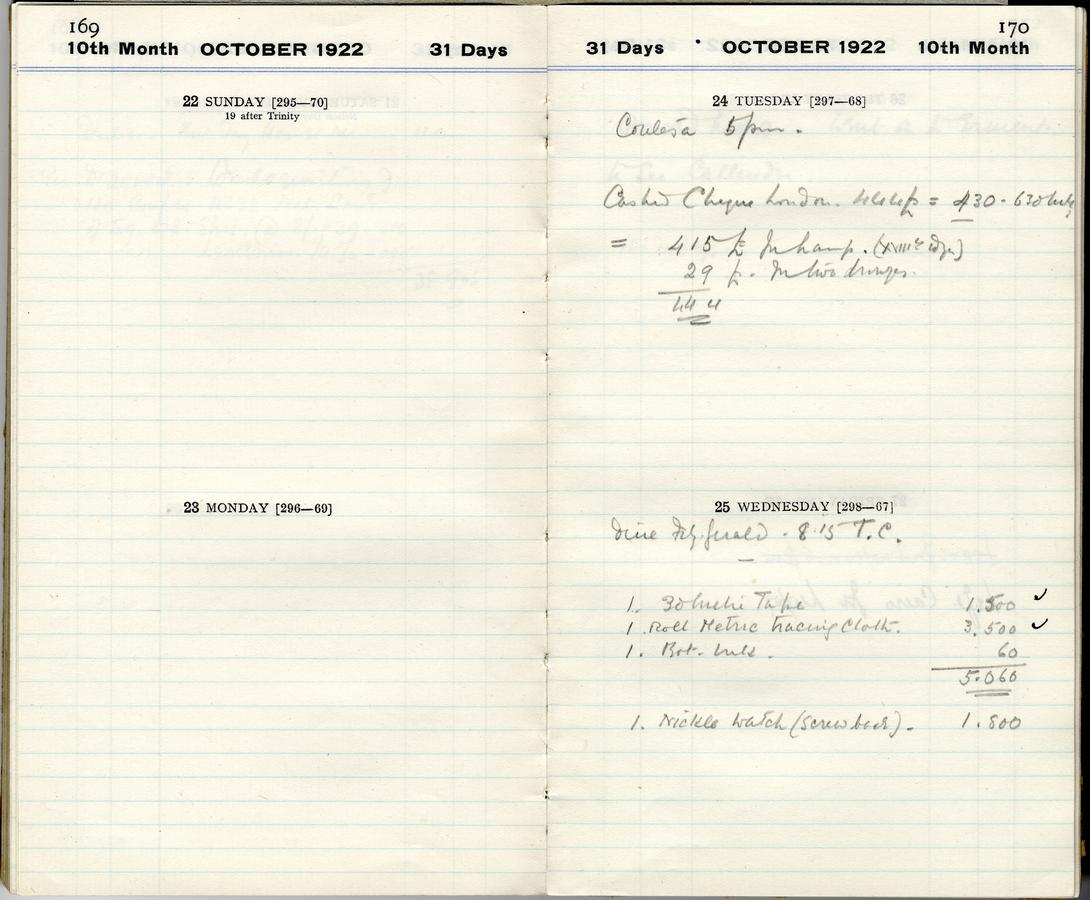 169
10th Month OCTOBER 1922 31 Days
22 SUNDAY [295—70]
19 after Trinity
23 MONDAY [296—69]
170
31 Days OCTOBER 1922 10th Month
24 TUESDAY [297—68]
5 pm.
Cashed Cheque London. = 430 - 630
= 415 £ In
29 In two
444
25 WEDNESDAY [298—67]
Dine Fitzgerald - 8.15 T.C.
1. 30 metre Tape 1.500 ✓
1. Roll Metric tracing Cloth. 3.500 ✓
1. Bot. Ink. 60
5.060
1. Nickle watch (screw back). 1.800